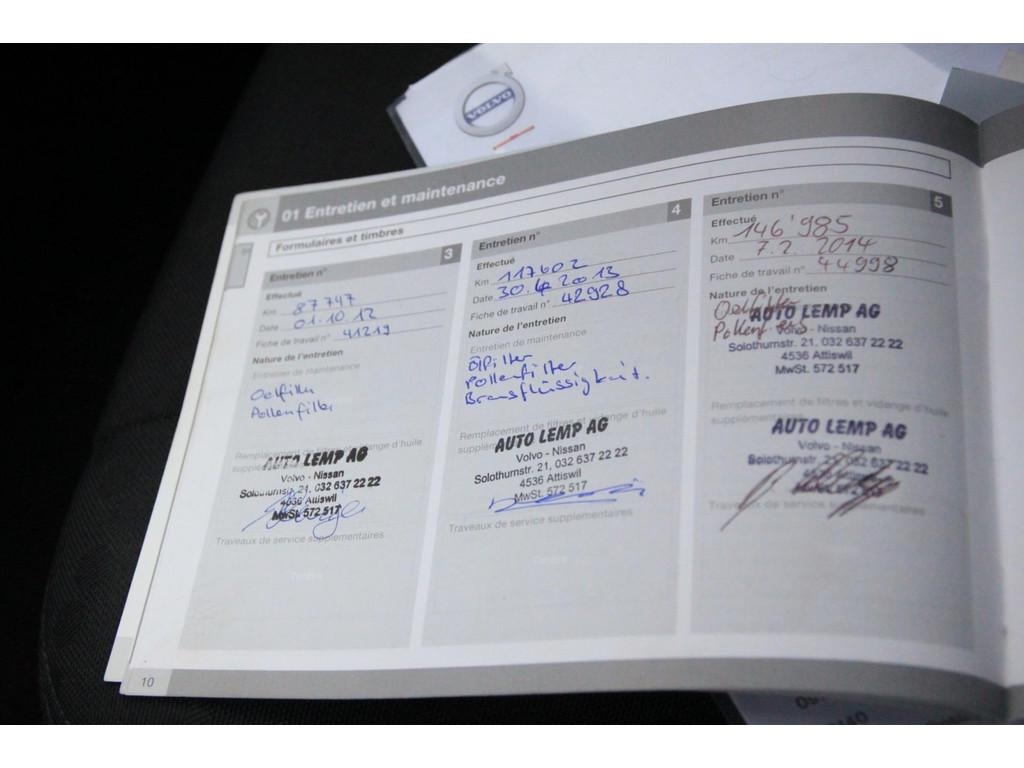 VOLVO
01 Entretien et maintenance
Formulaires et timbres
Entretien n° 3
Effectué
Km 87747
Date 01.10.12
Fiche de travail n° 41219
Nature de l'entretien
Entretien de maintenance
Oelfilter
Pollenfilter
Remplacement de filtres et vidange d'huile
supplémentaires
AUTO LEMP AG
Volvo - Nissan
Solothurnstr. 21, 032 637 22 22
4536 Attiswil
MwSt. 572 517
Travaux de service supplémentaires
Timbre
Entretien n° 4
Effectué
Km 117602
Date 30.4.2013
Fiche de travail n° 42928
Nature de l'entretien
Entretien de maintenance
Ölfilter
Pollenfilter
Bremsflüssigkeit.
Remplacement de filtres et vidange d'huile
AUTO LEMP AG
Volvo - Nissan
Solothurnstr. 21, 032 637 22 22
4536 Attiswil
MwSt. 572 517
Travaux de service supplémentaires
Timbre
Entretien n° 5
Effectué
Km 146'985
Date 7.2. 2014
Fiche de travail n° 44998
Nature de l'entretien
Oelfilter
AUTO LEMP AG
Volvo - Nissan
Solothurnstr. 21, 032 637 22 22
4536 Attiswil
MwSt. 572 517
Remplacement de filtres et vidange d'huile
supplémentaires
AUTO LEMP AG
Volvo - Nissan
Solothurnstr. 21, 032 637 22 22
Travaux de service supplémentaires
10